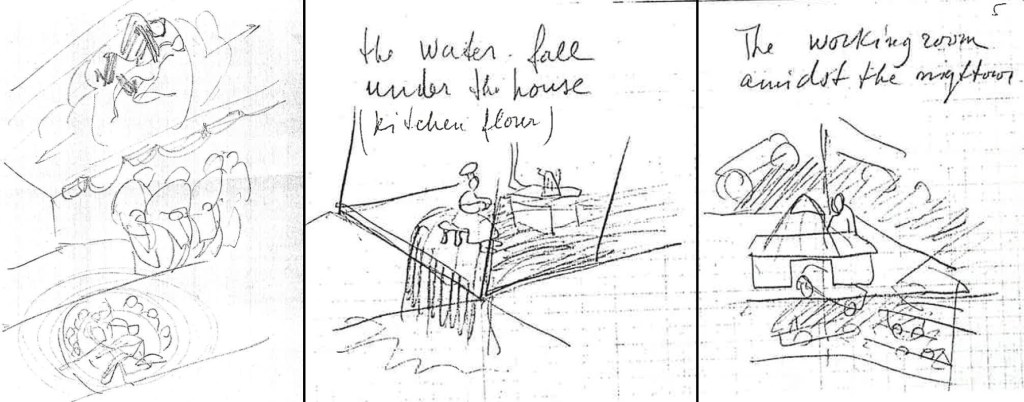 the water-fall
under the house
(kitchen flour)
5
The working room
amidst the